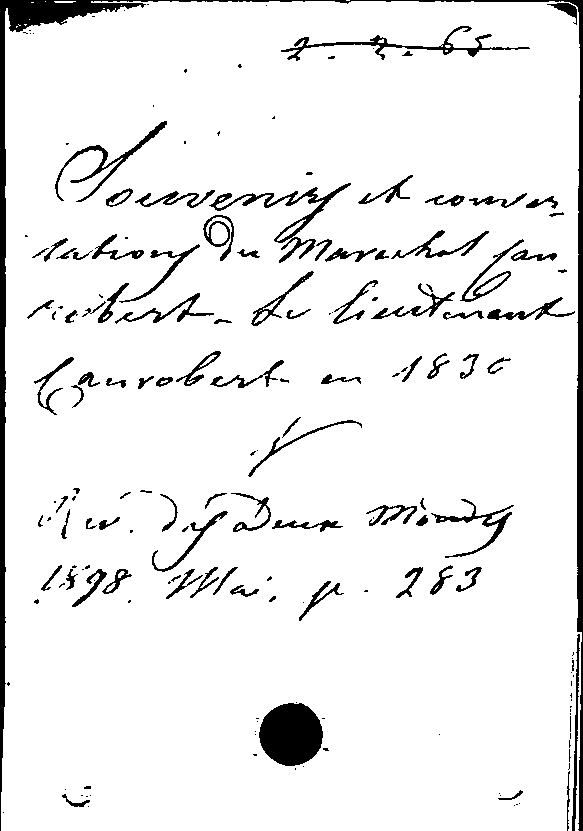 2. 2. 65
Souvenirs et conver-
sations du Maréchal Can-
robert - Le lieutenant
Canrobert en 1830
Rev. des Deux Mondes
1898. Mai. p. 283